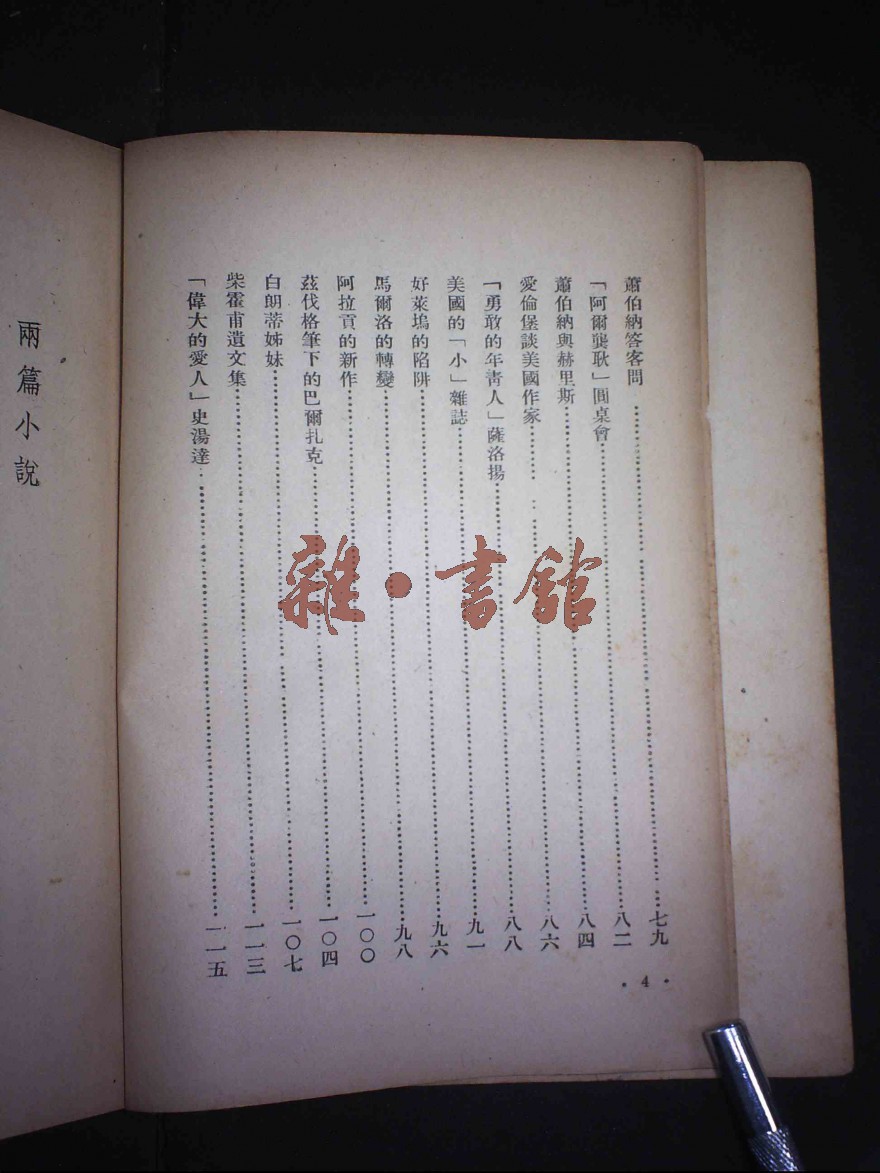 蕭伯納答客問……七九
「阿爾龔耿」圓桌會……八二
蕭伯納與赫里斯……八四
愛倫堡談美國作家……八六
「勇敢的年青人」薩洛揚……八八
美國的「小」雜誌……九一
好萊塢的陷阱……九六
馬爾洛的轉變……九八
阿拉貢的新作……一〇〇
茲伐格筆下的巴爾扎克……一〇四
白朗蒂姊妹……一〇七
柴霍甫遺文集……一一三
「偉大的愛人」史湯達……一一五
• 4 •
兩篇小說
雜•書館